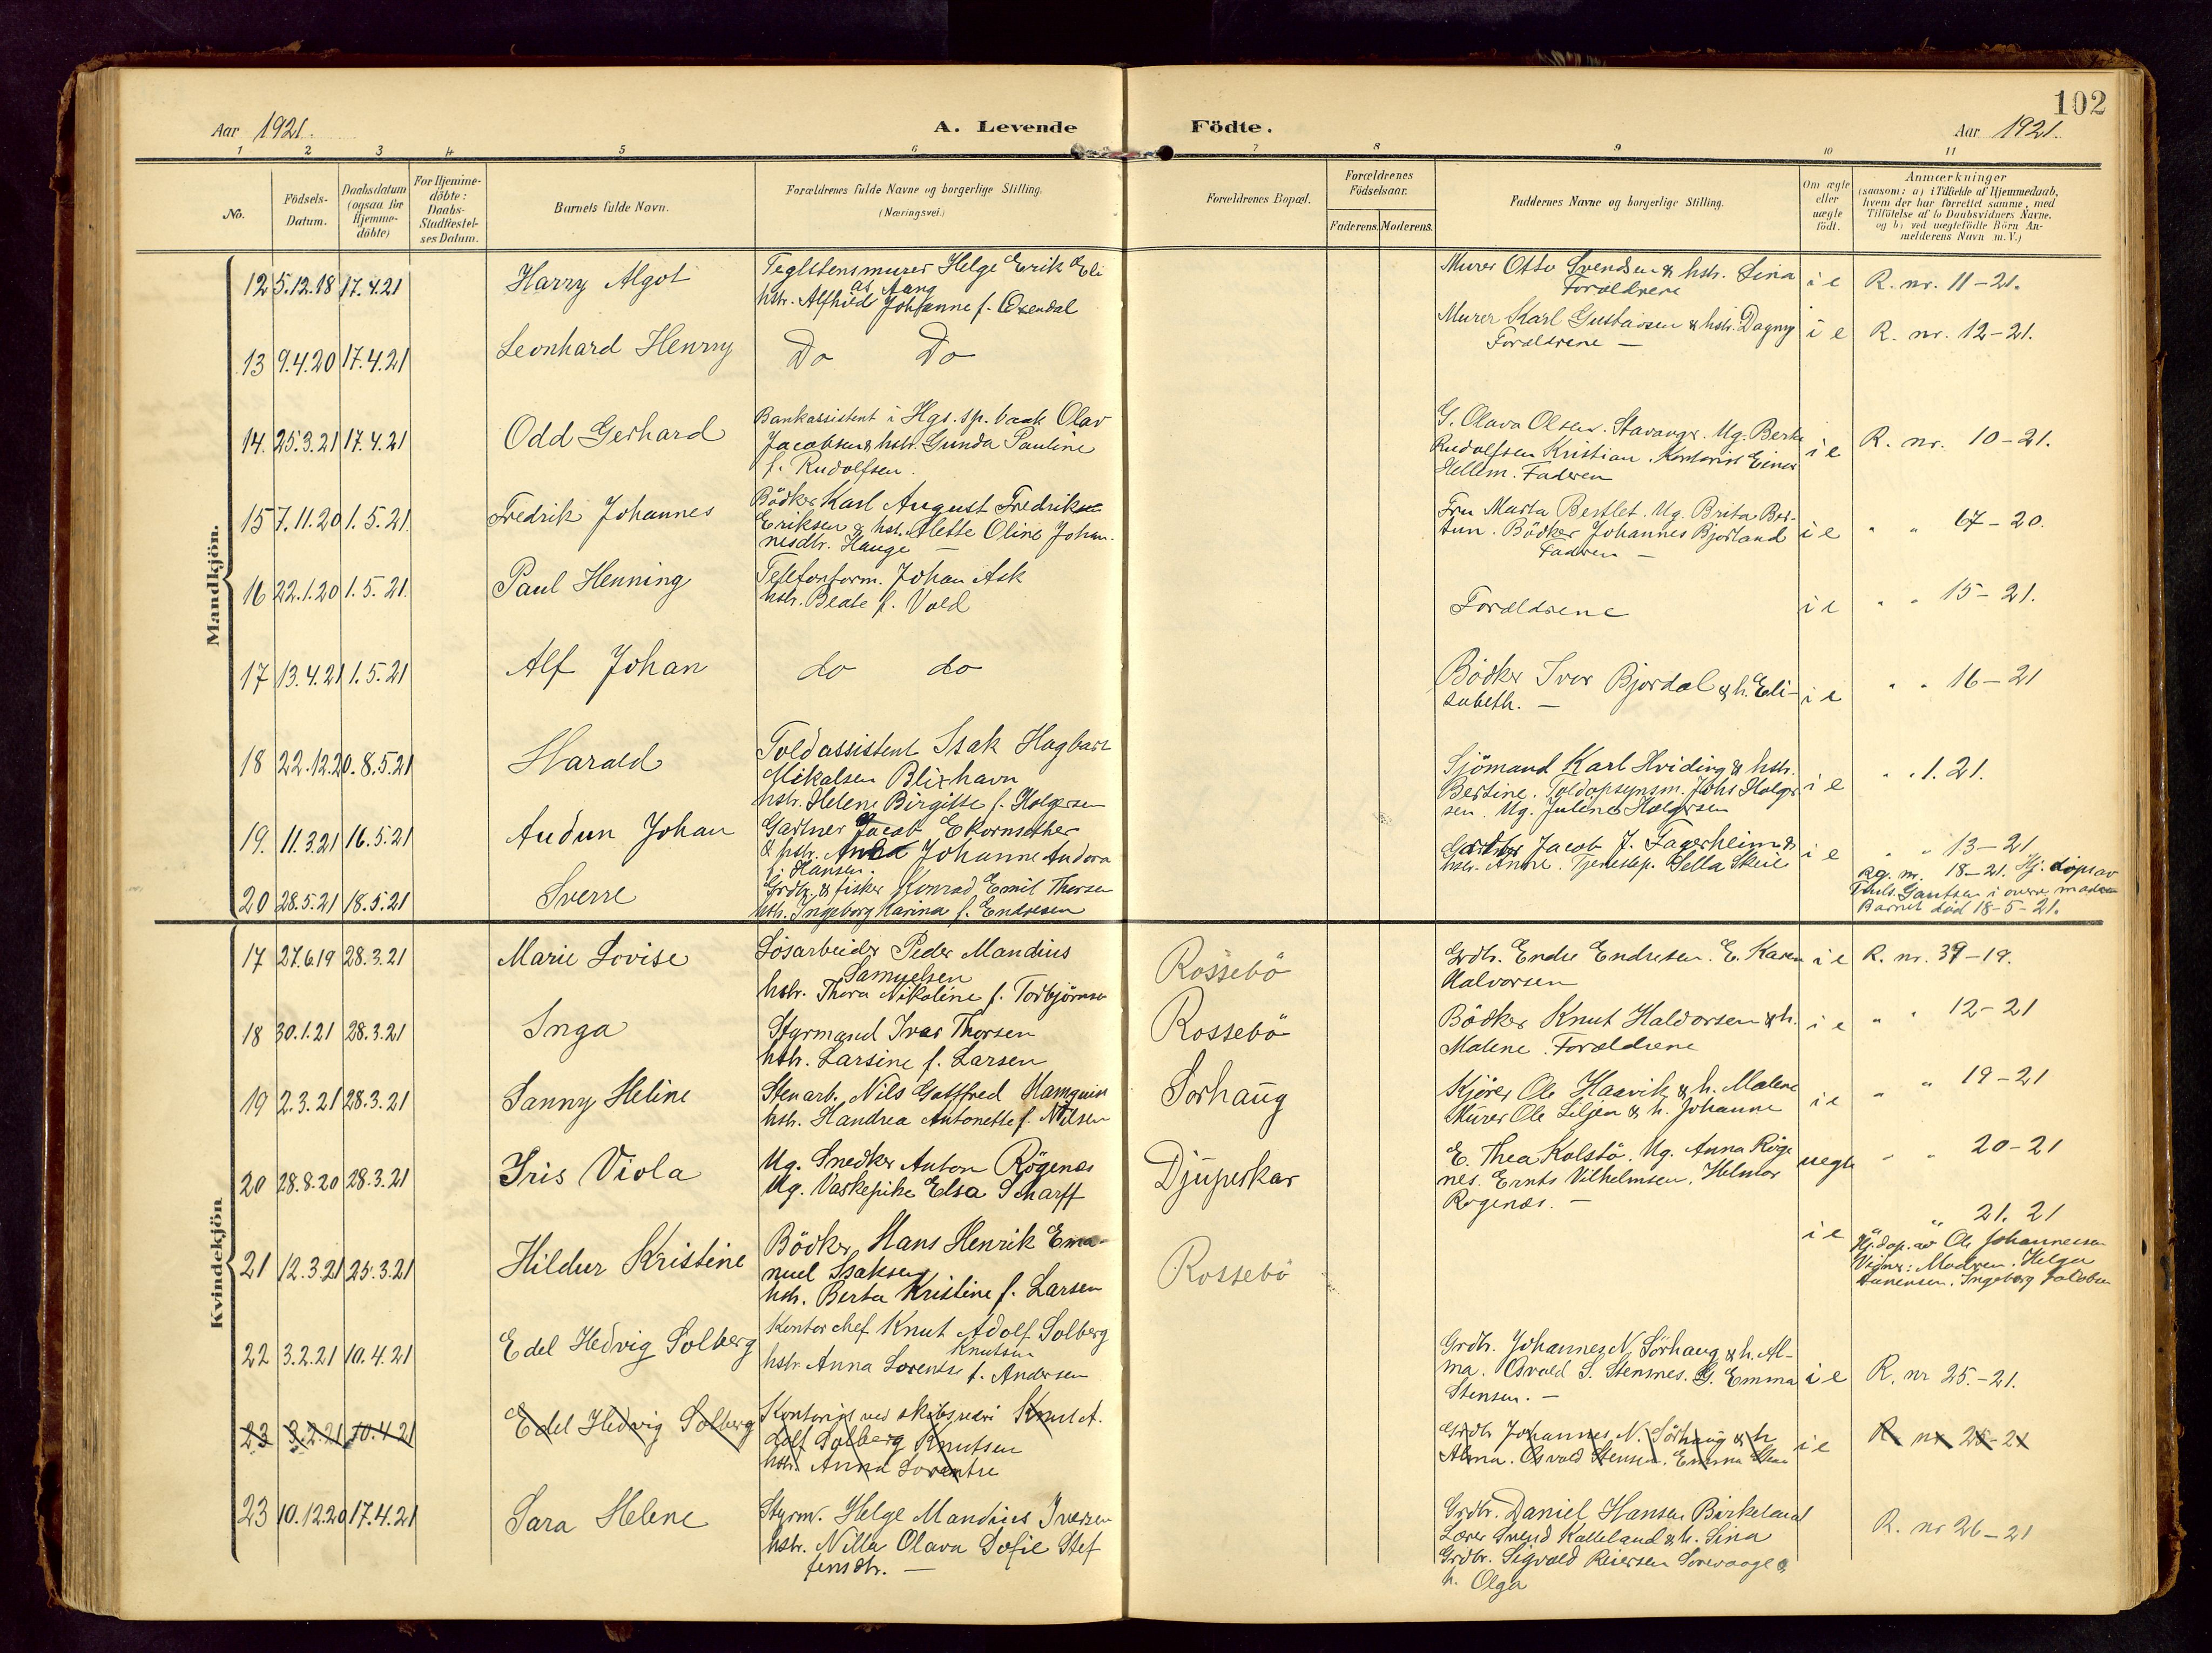 102
Aar 1921.
A. Levende Födte.
Aar 1921.
1 2 3 4 5 6 7 8 9 10 11
No.
Födsels-
Datum.
Daabsdatum
(ogsaa for
Hjemme-
döbte)
For Hjemme-
döbte:
Daabs-
Stadfæstel-
ses Datum.
Barnets fulde Navn.
Forældrenes fulde Navne og borgerlige Stilling.
(Næringsvei.)
Forældrenes Bopæl.
Forældrenes
Födselsaar.
Faderens. Moderens.
Faddernes Navne og borgerlige Stilling.
Om ægte
eller
uægte
födt.
Anmærkninger
(saasom: a) i Tilfælde af Hjemmedaab,
hvem der har forrettet samme, med
Tilföielse af to Daabsvidners Navne.
og b) ved uægtefödte Börn An-
melderens Navn m. V.)
Mandkjön.
12 5.12.18 17.4.21 Harry Algot
Teglstensmurer Helge Erik Eli
as Aang
hstr. Alfhild Johanne f. Oxendal
Murer Otto Svendsen & hstr. Lina
Forældrene
i e R. nr. 11-21.
13 9.4.20 17.4.21 Leonhard Henrry
Do Do
Murer Karl Gustavsen & hstr. Dagny
Forældrene —
i e R. nr. 12-21.
14. 25.3.21 17.4.21 Odd Gerhard
Bankassistent i Hgs. sp. bank Olav
Jacobsen & hstr. Gunda Pauline
f. Rudolfsen.
G. Olava Olsen. Stavanger. Ug. Berta
Rudolfsen Kristian. Kontorist Einar
Hellem. Faderen
i e R. nr. 10-21.
15 7.11.20 1.5.21. Fredrik Johannes
Bödker Karl August Fredrik
Eriksen & hst. Mette Oline Johan-
nesdtr. Hauge —
Fru Marta Bestlet. Ug. Brita Ber-
tun. Bödker Johannes Bjorland
Faderen —
i e " " 67-20.
16 22.1.20 1.5.21. Paul Henning
Telefonform. Johan Ask
hstr. Beate f. Vold
Forældrene
i e " " 15-21.
17 13.4.21 1.5.21 Alf Johan
do do
Bödker Ivar Bjordal & h. Eli-
sabeth. —
i e " " 16-21
18 22.12.20. 8.5.21 Harald
Toldassistent Isak Hagbart
Mikalsen Blixhavn
hstr. Helene Birgitte f. Holgersen
Sjömand Karl Hviding & hstr.
Bertine. Toldopsynsm. Johs Holger
sen. Ug. Juline Holgersen
i e " " 1.21.
19. 11.3.21 16.5.21 Audun Johan
Gartner Jacob Ekornsether
& hstr. Johanne Andora
f. Hansen.
Gartner Jacob J. Fagerheim &
hstr. Anne. Tjenestep. Gella Skeie
i e " " 13-21
20 28.5.21 18.5.21 Sverre
Grdbr. & fisker Konrad Emil Thorsen
hstr. Ingeborg Karina f. Endresen
Rg. nr. 18-21. Hj. döpt av
Gautsen i overv. moderen
Barnet död 18-5-21.
Kvindekjön
17 27.6.19 28.3.21 Marie Lovise
Lösarbeider Peder Mandius
Samuelsen
hstr. Thora Nikoline f. Torbjörnsen
Rossebö
Grdbr. Endre Endresen. E. Karen
Halvorsen
i e R. nr. 37-19.
18 30.1.21 28.3.21 Inga
Styrmand Ivar Thorsen
hstr. Larsine f. Larsen
Rossebö
Bödker Knut Haldorsen & h.
Malene. Forældrene
i e " " 12-21
19 2.3.21 28.3.21 Sanny Heline
Stenarb. Nils Gottfred Hamquist
hstr. Handrea Antonette f. Nilsen
Sorhaug
Kjörer Ole Haavik & h. Malene
Murer Ole Liljen & h. Johanne
i e " " 19-21
20 28.8.20 28.3.21 Iris Viola
Ug. Snedker Anton Rögenes
Ug. Vaskepike Elsa Scharff
Djupeskar
E. Thea Kolstö. Ug. Anna Röge
nes. Ernts Vilhelmsen. Helmer
Rogenes. —
uegte " " 20-21
21 12.3.21 25.3.21 Hildur Kristine
Bödker Hans Henrik Ema-
nuel Isaksen
hstr. Berta Kristine f. Larsen
Rossebö
i e " 21.21
Hj.döp. av Ole Johannessen
Vidner: Modren. Helga
Ingeborg Jakobsen
22 3.2.21 10.4.21 Edel Hedvig Solberg
Kontorchef Knut Adolf Solberg
Knutsen
hstr. Anna Lorentse f. Andersen
Grdbr. Johannes N. Sörhaug & h. Al-
ma. Osvald S. Stensnes. G. Emma
Stensen. —
i e R. nr 25.-21.
23 3.2.21 10.4.21 Edel Hedvig Solberg
Kontorist ved skibsrederi Knut A-
dolf Solberg Knutsen
hstr. Anna Lorentse
Grdbr Johannes N. Sörhaug & h
Alma. Osvald Stensen. Emma
i e R nr 25-21
23 10.12.20 17.4.21 Sara Helene
Styrm. Helge Mandius Iversen
hstr. Nilla Olava Sofie Stef
fensdtr. —
Grdbr. Daniel Hansen Birkeland
Lærer Svend Kalleland & h. Lina
Grdbr. Sigvald Reiersen Sorevaage &
h. Olga
R. nr 26-21